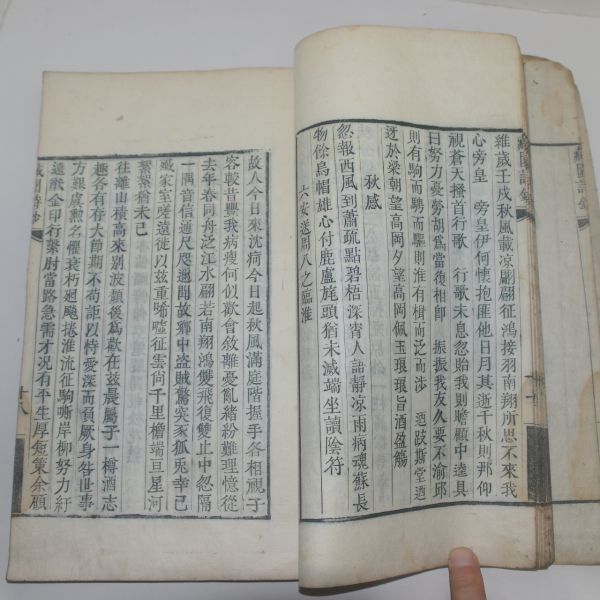 維歲壬戌秋風載涼翩翩征鴻接羽南翔所思不來我
心旁皇　旁皇伊何懷抱匪他日月其逝千秋則那仰
視蒼天播首行歌　行歌未息忽貽我則瞻顧中逵具
曰努力憂勞胡爲當復相卹　振振我友久要不渝邱
則有駒而騁而驅則淮有楫而泛而涉　邁跂斯堂迺
迓於梁朝望高岡夕望高岡佩玉琅琅旨酒盈觴
秋感
忽報西風到蕭疏點碧梧深宵人語靜涼雨病魂蘇長
物餘烏帽雄心付鹿盧旄頭猶未滅端坐讀陰符
六安送周八之臨淮
故人今日來沈疴今日起秋風滿庭階握手各相視子
容較昔豐我病瘦何似歡會敘離憂亂緒紛難理憶從
去年春同舟泛江水翩若南翔鴻雙飛復雙止中忽隔
一隅音信通尺咫邇聞故鄉中盜賊驚突豕狐兎幸己
殲家室嗟遠徙以兹重唏噓征雲倘千里檐端亘星河
絮絮猶未已
往離山積高來別波頹後爲歡在兹晨屬子一樽酒志
趣各有存大節期不苟詎以恃愛深而負厥身咎世事
方艱虞勲名懼衰朽迴飈捲淮流征駒嘶岸柳努力紆
遠猷金印行縈肘當路急需才况有平生厚短策余頑